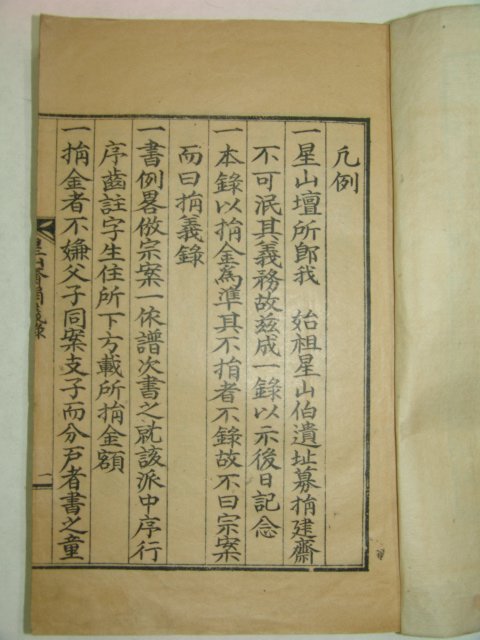 凡例
一星山壇所郎我　始祖星山伯遺址募捐建齋
不可泯其義務故玆成一錄以示後日記念
一本錄以捐金爲準其不捐者不錄故不曰宗案
而曰捐義錄
一書例畧倣宗案一依譜次書之就該派中序行
序齒註字生住所下方載所捐金額
一捐金者不嫌父子同案支子而分戶者書之童
一